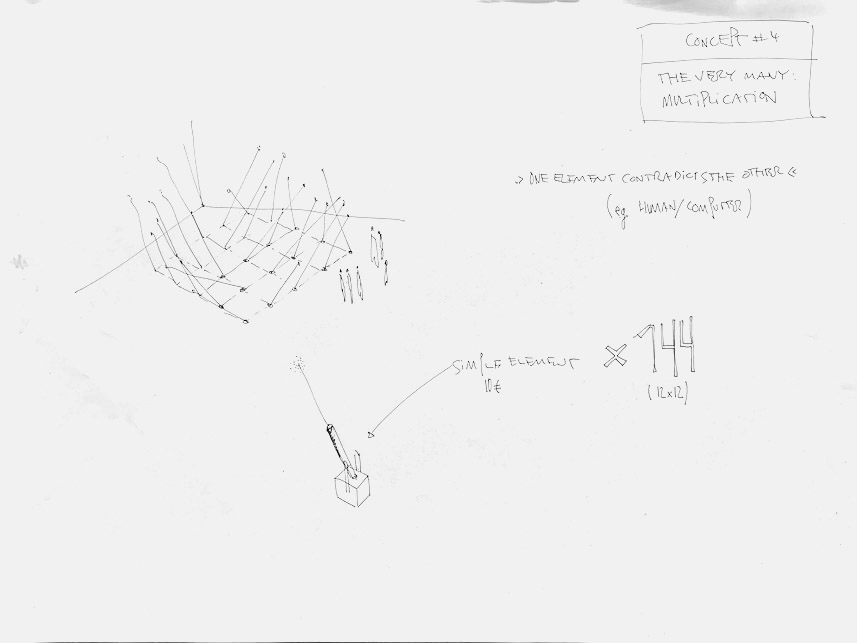 CONCEPT #4
THE VERY MANY:
MULTIPLICATION
→ ONE ELEMENT CONTRADICTS THE OTHER ←
(eg HUMAN/COMPUTER)
SIMPLE ELEMENT
10€
×144
(12x12)